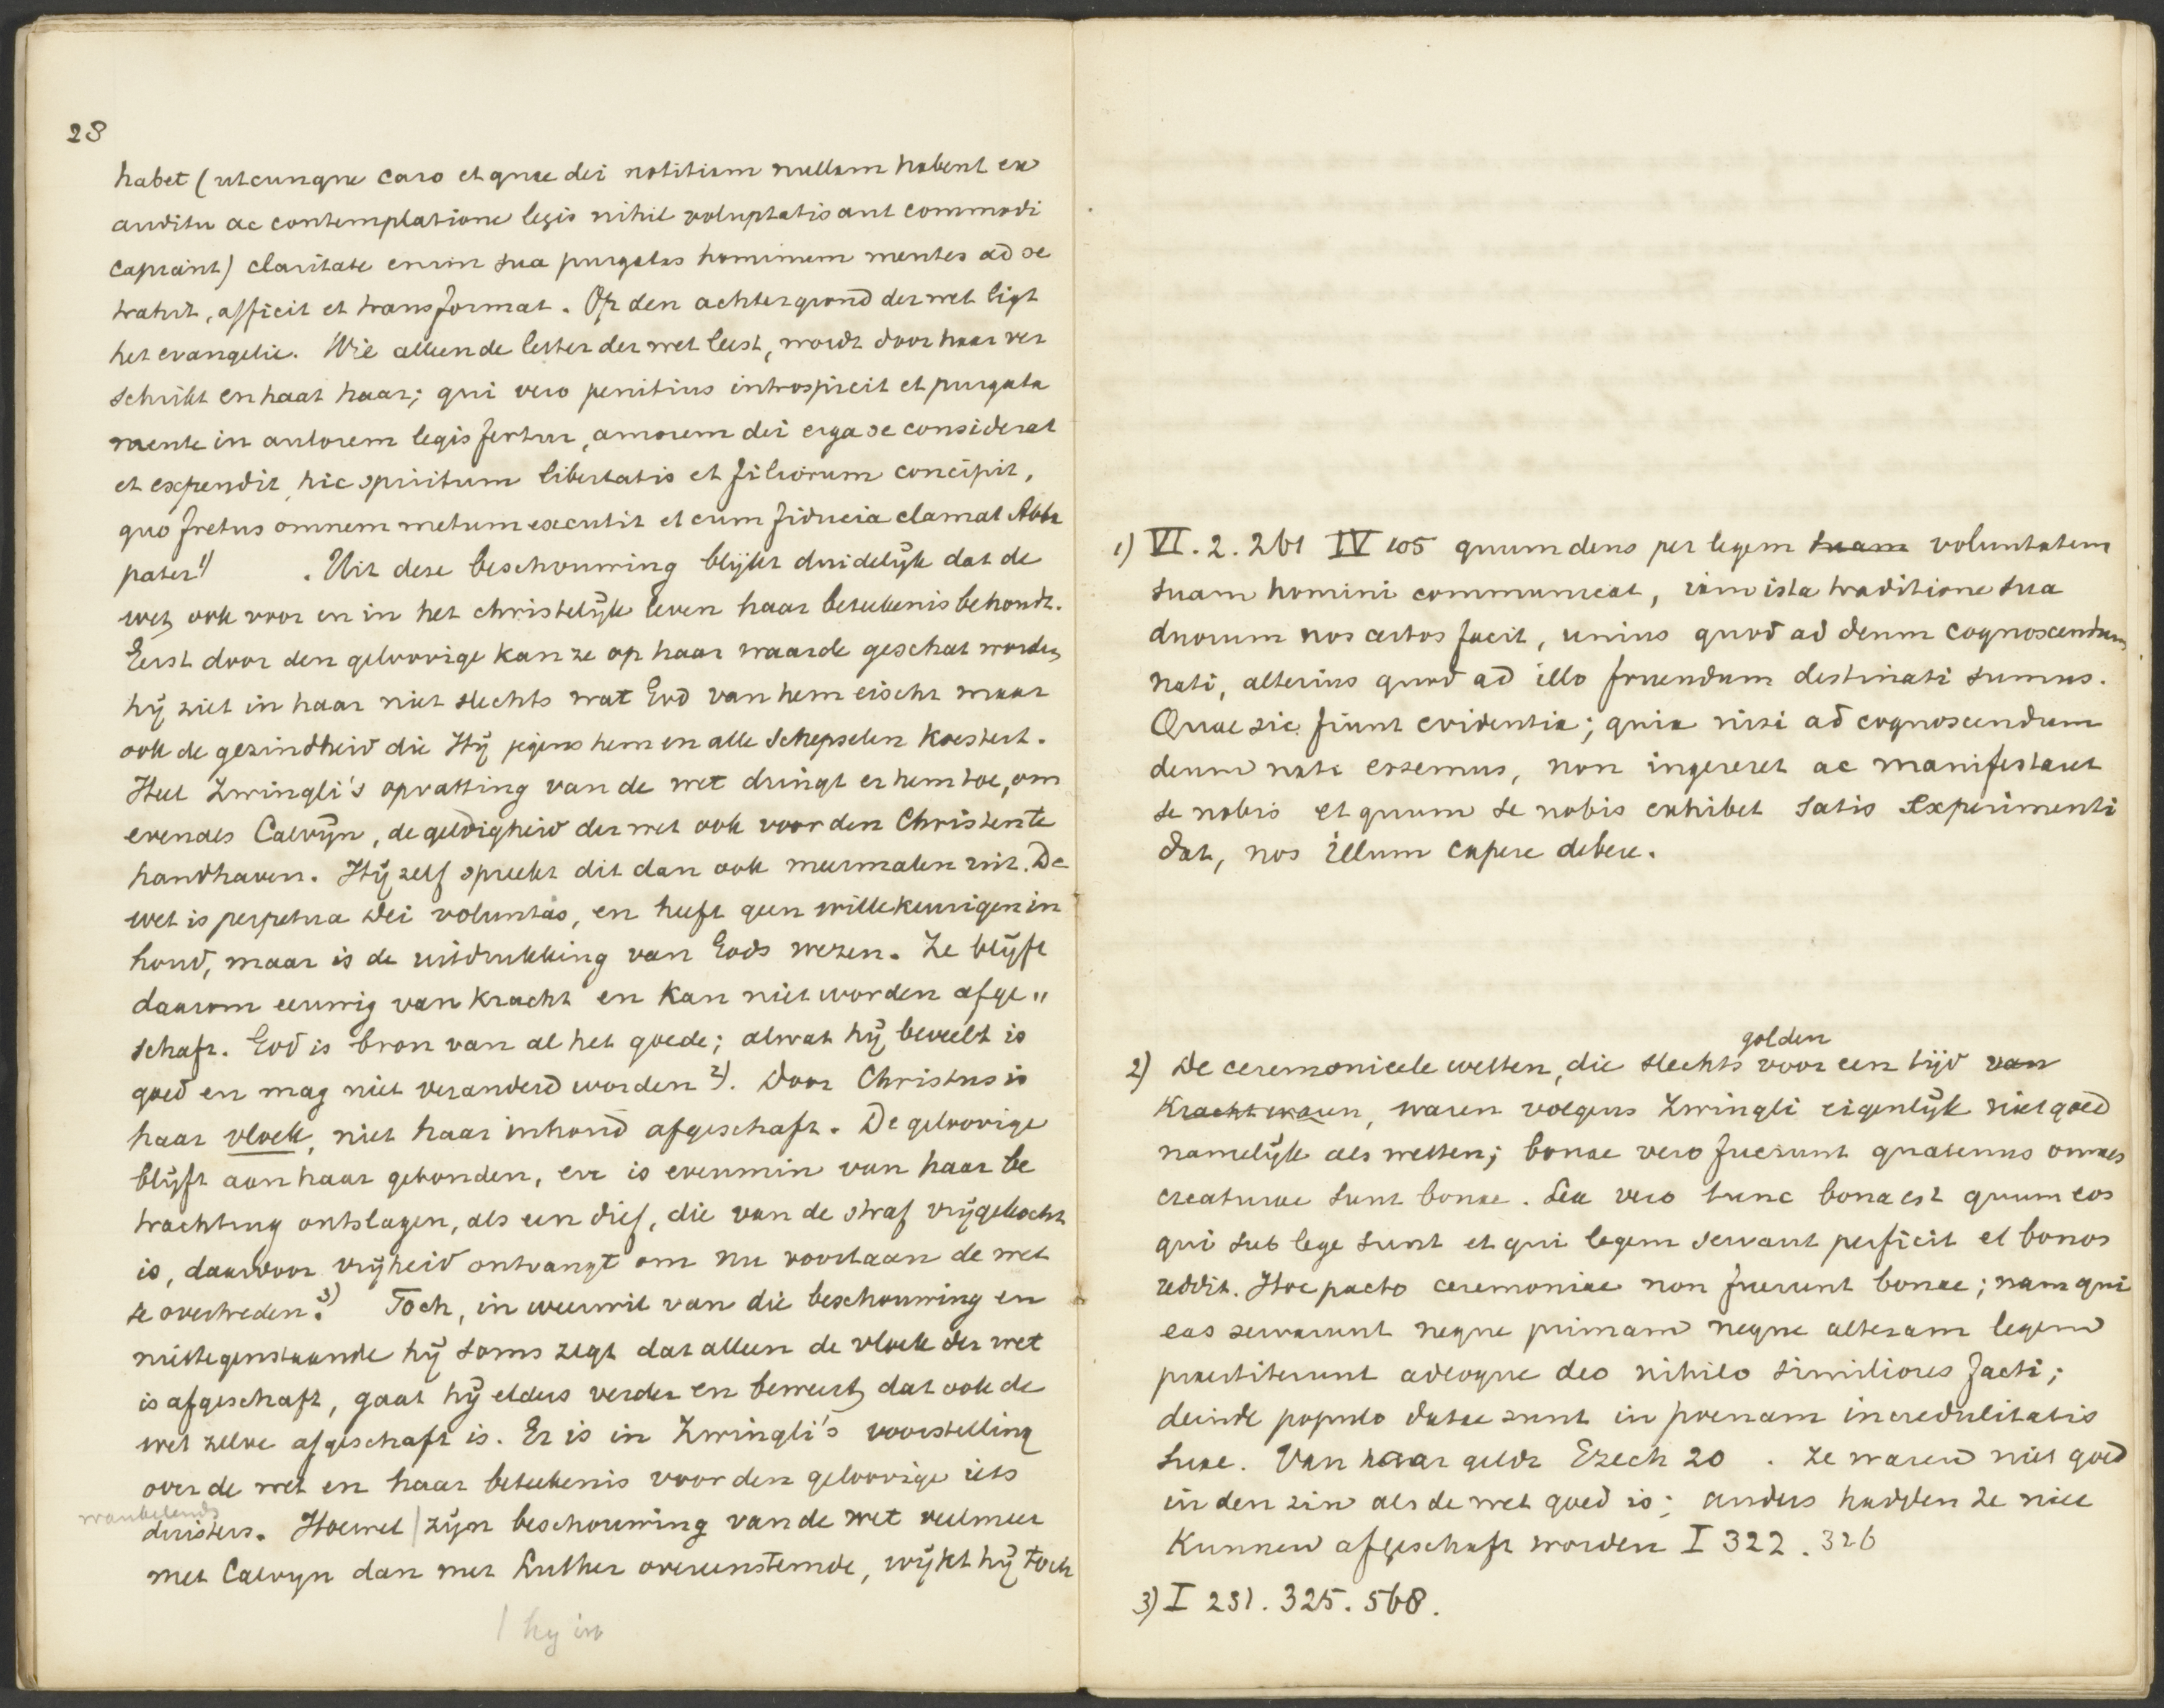 28
habet (utcunque caro et quae dei notitiam nullam habent ex
auditu ac contemplatione legis nihil voluptatis aut commodi
capiant) claritate enim sua purgatas hominum mentes ad se
trahit, afficit et transformat. Op den achtergrond der wet ligt
het evangelie. Wie alleen de letter der wet leest, wordt door haar ver
schrikt en haat haar; qui vero penitius introspicit et purgata
mente in autorem legis fertur, amorem dei erga se considerat
et expendit, hic spiritum libertatis et filiorum concipit,
quo fretus omnem metum excutit et cum fiducia clamat Abba
pater 1) . Uit deze beschouwing blijkt duidelijk dat de
wet ook voor en in het christelijk leven haar beteekenis behoudt.
Eerst door den geloovige kan ze op haar waarde geschat worden
hij ziet in haar niet slechts wat God van hem eischt maar
ook de gezindheid die Hij jegens hem en alle schepselen koestert.
Heel Zwingli's opvatting van de wet dringt er hem toe, om
evenals Calvijn, de geldigheid der wet ook voor den Christen te
handhaven. Hij zelf spreekt dit dan ook meermalen uit. De
wet is perpetua Dei voluntas, en heeft geen willekeurigen in
houd, maar is de uitdrukking van Gods wezen. Ze blijft
daarom eeuwig van kracht en kan niet worden afge„
schaft. God is bron van al het goede; alwat hij beveelt is
goed en mag niet veranderd worden 2). Door Christus is
haar vloek, niet haar inhoud afgeschaft. De geloovige
blijft aan haar gebonden, en is evenmin van haar be
trachting ontslagen, als een dief, die van de straf vrijgekocht
is, daardoor vrijheid ontvangt om nu voortaan de wet
te overtreden. 3) Toch, in weerwil van die beschouwing en
niettegenstaande hij soms zegt dat alleen de vloek der wet
is afgeschaft, gaat hij elders verder en beweert, dat ook de
wet zelve afgeschaft is. Er is in Zwingli's voorstelling
over de wet en haar beteekenis voor den geloovige iets
duisters. Hoewel | zijn beschouwing van de wet veelmeer
met Calvyn dan met Luther overeenstemde, wijkt hij toch
| hy in
1) VI. 2. 261 IV 105 quum deus per legem suam voluntatem
suam homini communicat, iam ista traditione sua
duorum nos certos facit, unius quod ad deum cognoscendum
nati, alterius quod ad illo fruendum destinati sumus.
Quae sic fiunt evidentia; quia nisi ad cognoscendum
deum nati essemus, non ingereret ac manifestaret
se nobis et quum se nobis exhibet satis experimenti
dat, nos illum capere debere.
golden
2) De ceremonieele wetten, die slechts voor een tijd van
kracht waren, waren volgens Zwingli eigenlijk niet goed
namelijk als wetten; bonae vero fuerunt quatenus omnes
creaturae sunt bonae. Lex vero tunc bona est quum eos
qui sub lege sunt et qui legem servant perficit et bonos
reddit. Hoc pacto ceremoniae non fuerunt bonae; nam qui
eas servarunt neque primam neque alteram legem
praestiterunt adeoque deo nihilo similiores facti;
deinde populo datae sunt in poenam incredulitatis
suae. Van haar geldt Ezech 20 . Ze waren niet goed
in den zin als de wet goed is; anders hadden ze niet
kunnen afgeschaft worden I 322. 326
3) I 231. 325. 568.